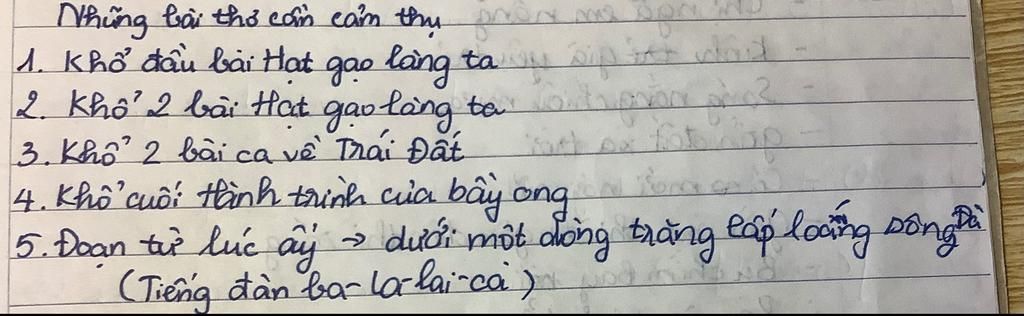 Những bài thơ cần cảm thụ
1. Khổ đầu bài Hạt gạo làng ta
2. Khổ 2 bài Hạt gạo làng ta
3. Khổ 2 bài ca về Trái Đất
4. Khổ cuối Hành trình của bầy ong
5. Đoạn từ lúc ấy → dưới một dòng trăng lấp loáng sông Đà
(Tiếng đàn ba-la-lai-ca)